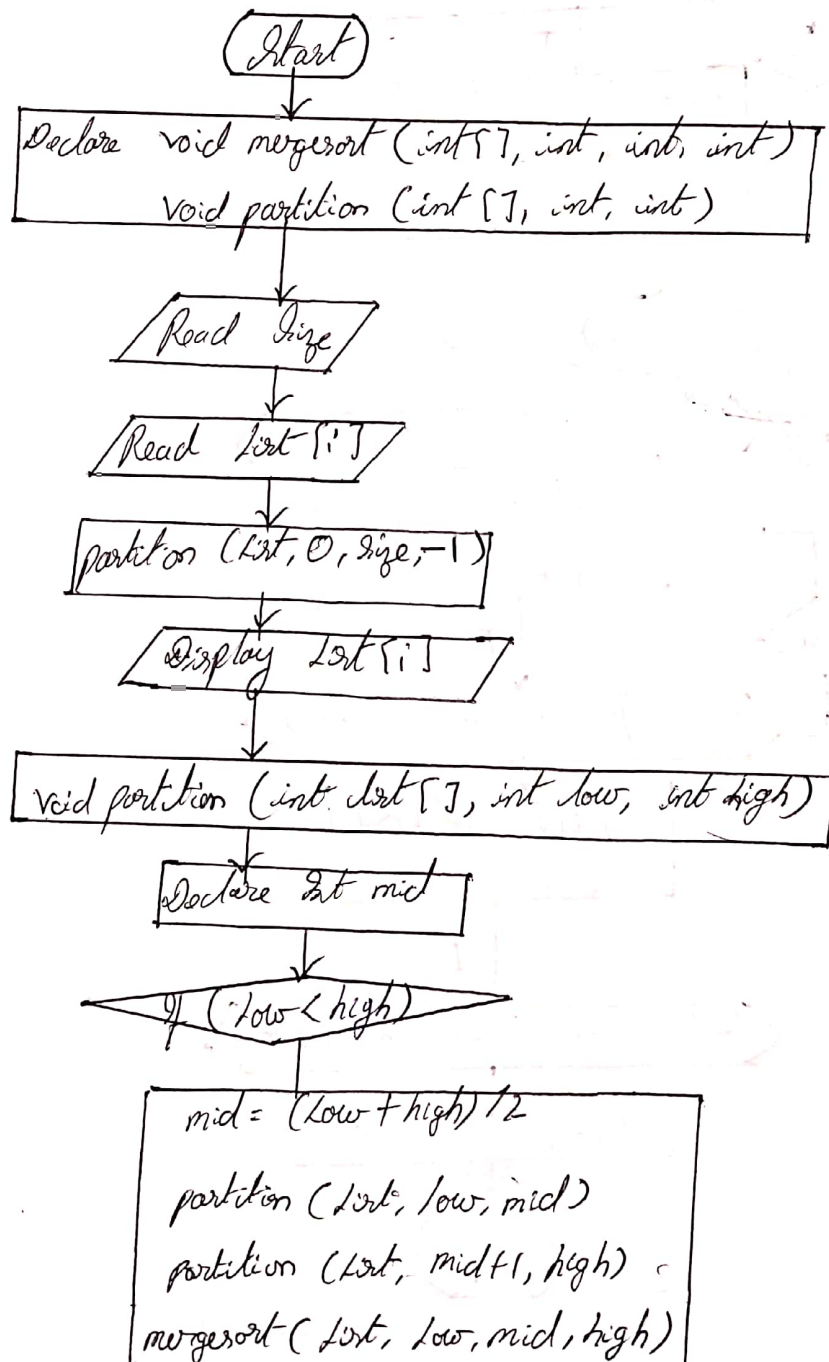 Start
Declare void mergesort (int [], int, int, int)
void partition (int [], int, int)
Read Size
Read List [i]
partition (List, 0, size, -1)
Display List [i]
void partition (int list [], int low, int high)
Declare Int mid
If (Low < high)
mid = (Low + high) / 2
partition (List, low, mid)
partition (List, mid+1, high)
mergesort (List, Low, mid, high)